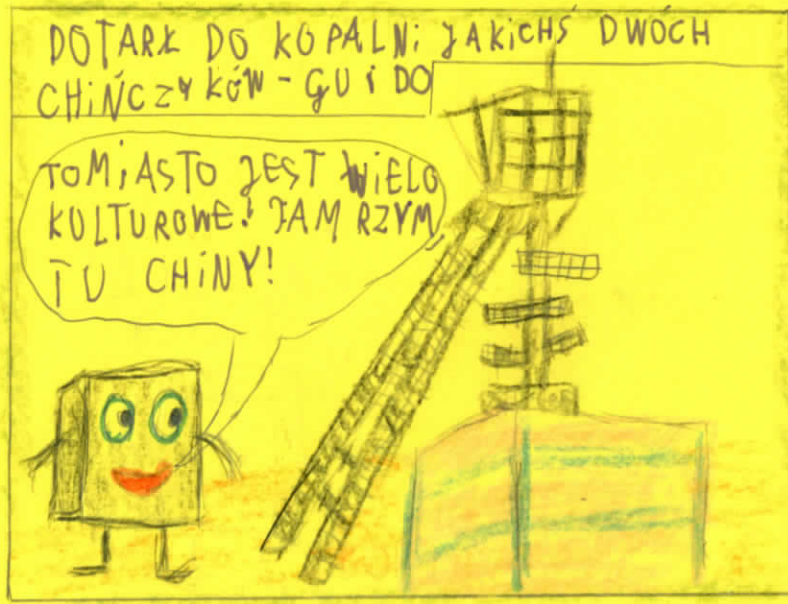 DOTARŁ DO KOPALNI JAKICHŚ DWÓCH
CHIŃCZYKÓW - GU I DO
TO MIASTO JEST WIELO
KULTUROWE! TAM RZYM
TU CHINY!